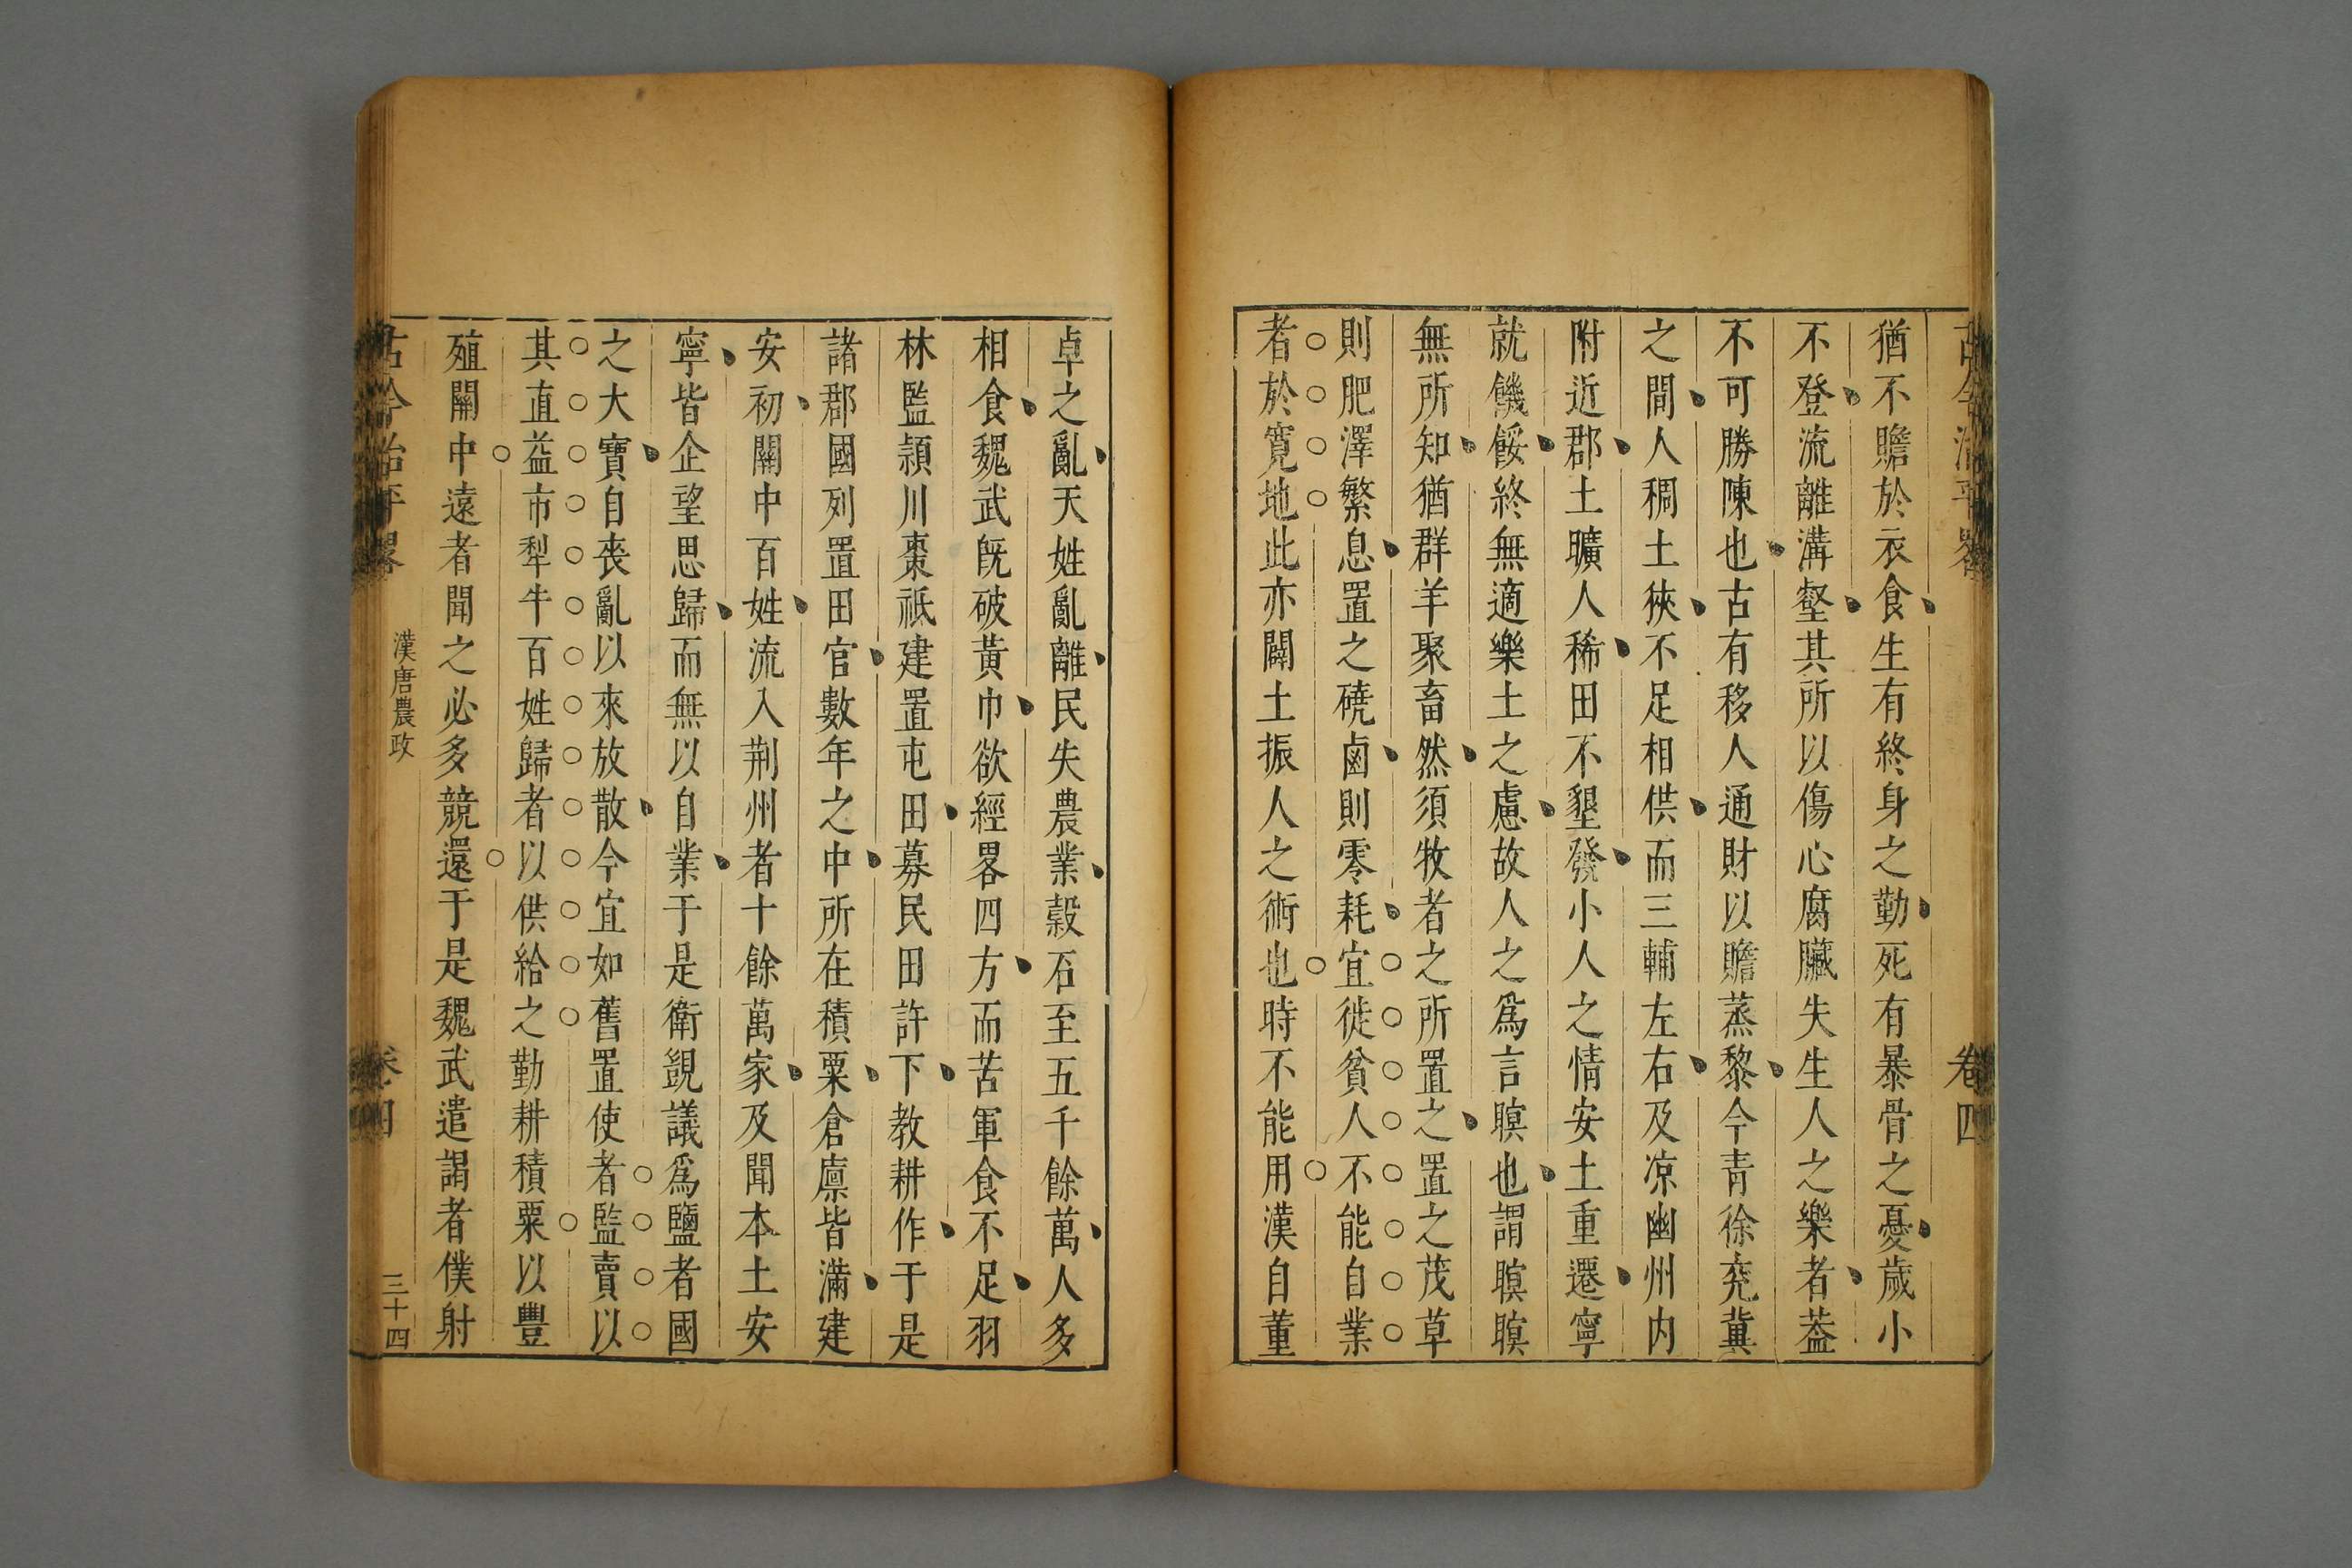 古今治平畧 卷四
猶不贍於衣食生有終身之勤死有暴骨之憂歲小
不登流離溝壑其所以傷心腐臟失生人之樂者葢
不可勝陳也古有移人通財以贍蒸黎今青徐兖冀
之間人稠土狹不足相供而三輔左右及凉幽州内
附近郡土曠人稀田不墾發小人之情安土重遷寧
就饑餒終無適樂土之慮故人之爲言瞑也謂瞑瞑
無所知猶群羊聚畜然須牧者之所置之置之茂草
則肥澤繁息置之磽鹵則零耗宜徙貧人不能自業
者於寬地此亦闢土振人之術也時不能用漢自董
卓之亂天姓亂離民失農業穀石至五千餘萬人多
相食魏武旣破黃巾欲經畧四方而苦軍食不足羽
林監潁川棗祗建置屯田募民田許下教耕作于是
諸郡國列置田官數年之中所在積粟倉廩皆滿建
安初關中百姓流入荆州者十餘萬家及聞本土安
寧皆企望思歸而無以自業于是衛覬議爲鹽者國
之大寶自喪亂以來放散今宜如舊置使者監賣以
其直益市犁牛百姓歸者以供給之勤耕積粟以豐
殖關中遠者聞之必多競還于是魏武遣謁者僕射
古今治平畧 漢唐農政 卷四 三十四